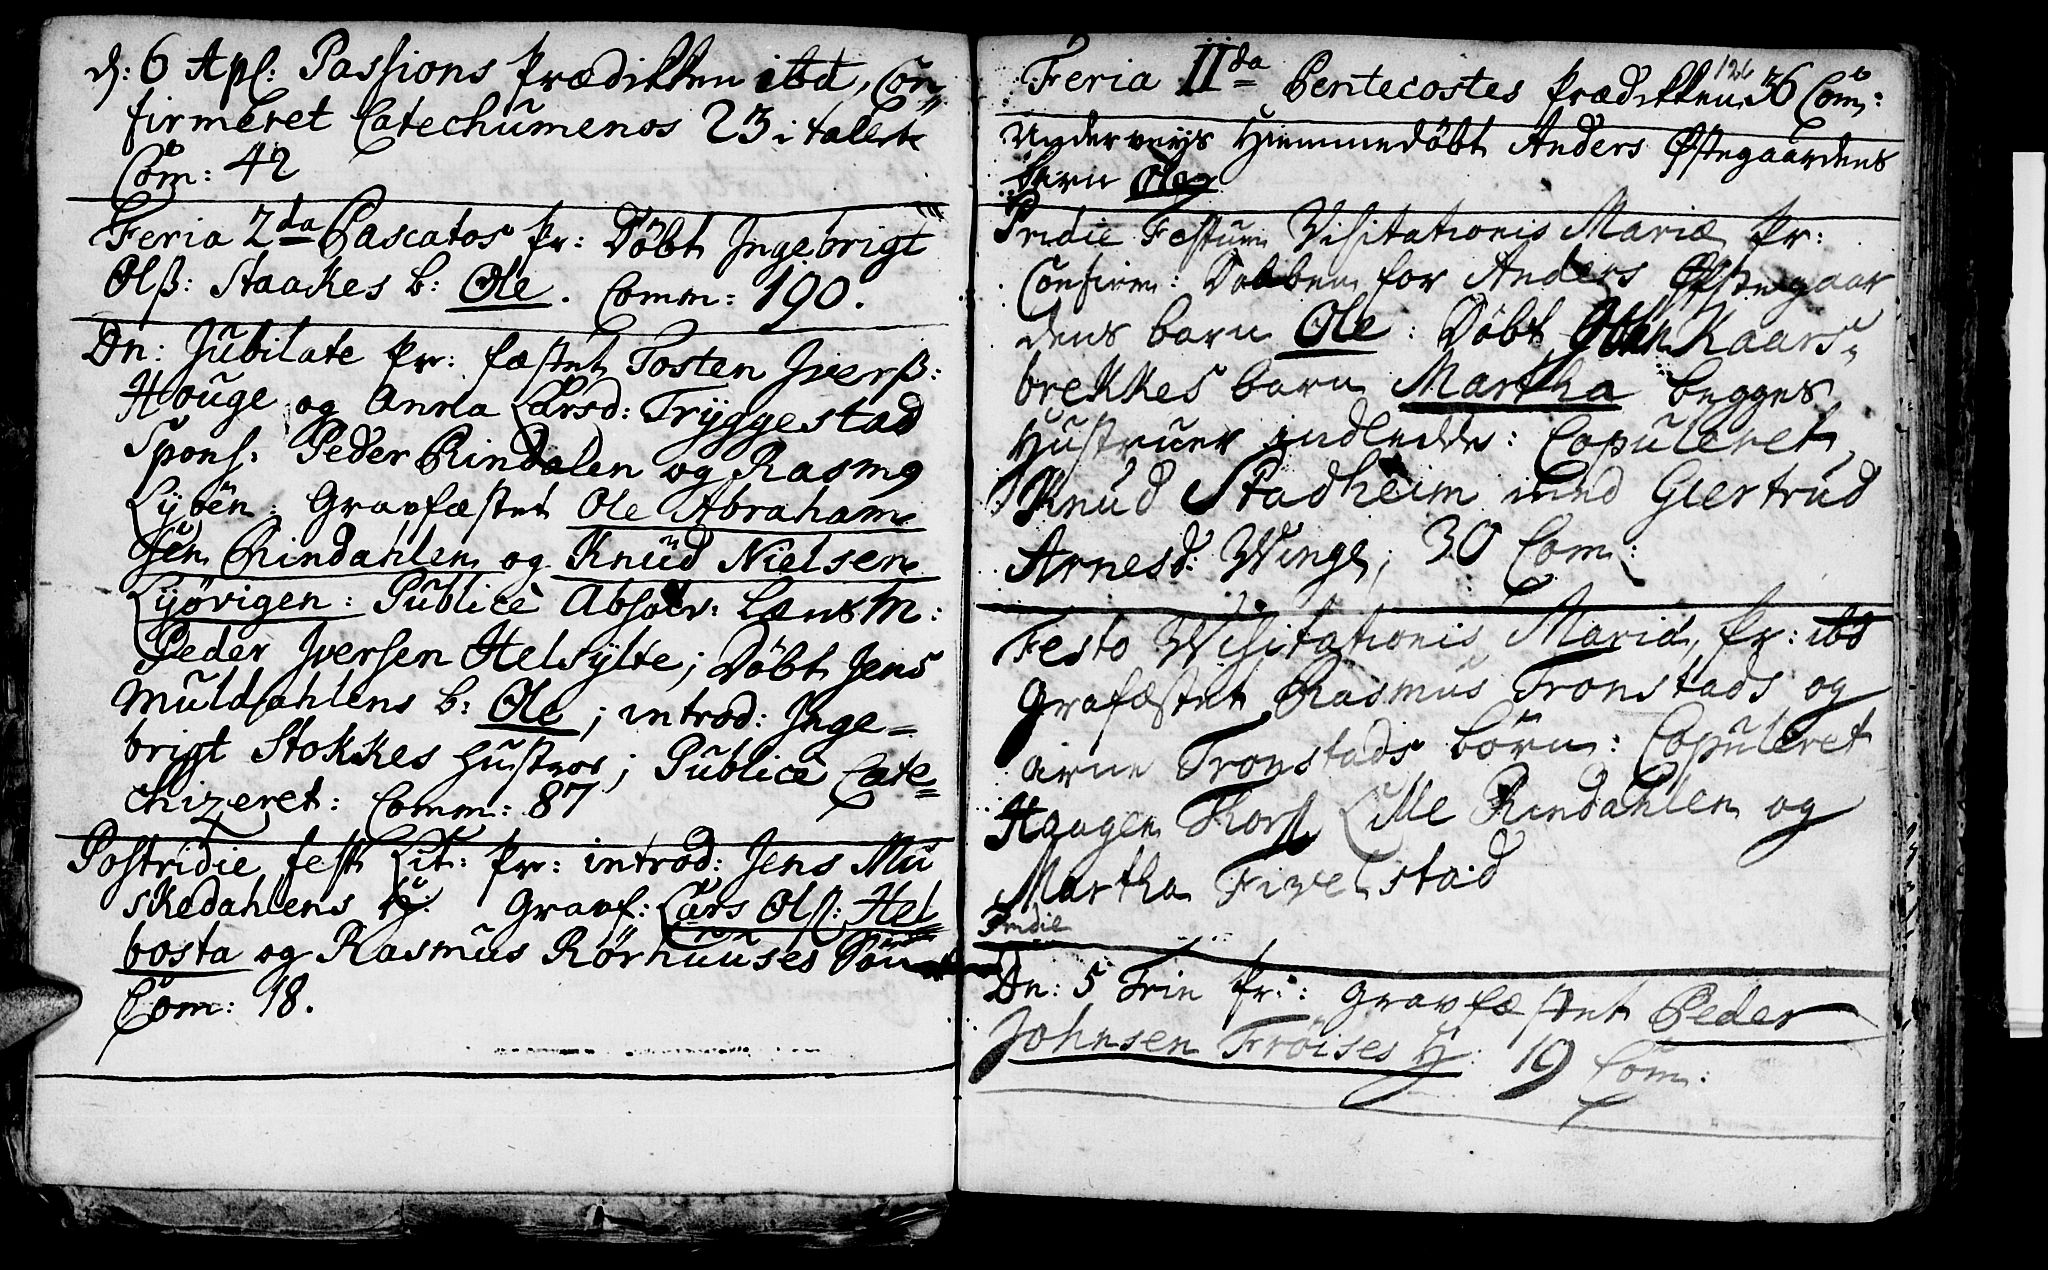 d: 6 Apl: Passions Prædikken ibd, Con„
firmeret Catechumenos 23 i tallet
Com: 42
Feria 2da Pascatos Pr: Döbt Ingebrigt
Olß: Staakes b: Ole. Comm: 190.
Dn: Jubilate Pr: fæstet Tosten Iverß:
Houge og Anna Larsd: Tryggestad
Spons: Peder Rindalen og Rasmg
Lyöen: Gravfæstet Ole Abraham
sen Rindahlen og Knud Nielsen
Lyörigen: Publicè Absolv: LænsM:
Peder Iversen Helsylte; Döbt Jens
Muldahlens b: Ole; introd: Inge=
brigt Stokkes Hustroe; Publicè Cate=
chizeret: Comm: 87
Postridie fest Lit: Pr: introd: Jens Mu
skedahlens H: Gravf: Lars Olß: Hel
bosta og Rasmus Rörhuuses Dön
Com: 18.
126
Feria IIda Pentecostes Prædikken 36 Com:
Underveys Hiemmedöbt Anders Østegaardens
barn Ole
Pridie Festum Visitationis Mariæ Pr:
Confirm: Daaben for Anders Østegaar
dens barn Ole: Döbt Kaars„
brekkes barn Martha begges
Hustruer indledde: Copuleret
Knud Stadheim med Giertrud
Arnesd: Winge; 30 Com:
Festo Visitationis Mariæ, Pr: ibd
Grafæstet Rasmus Tronstads og
Arne Tronstads börn: Copuleret
Haagen Lille Rindahlen og
Martha Fivelstad
Pridie
Dn: 5 Trin Pr: Gravfæstet Peder
Johnsen Fröises H: 19 Com: